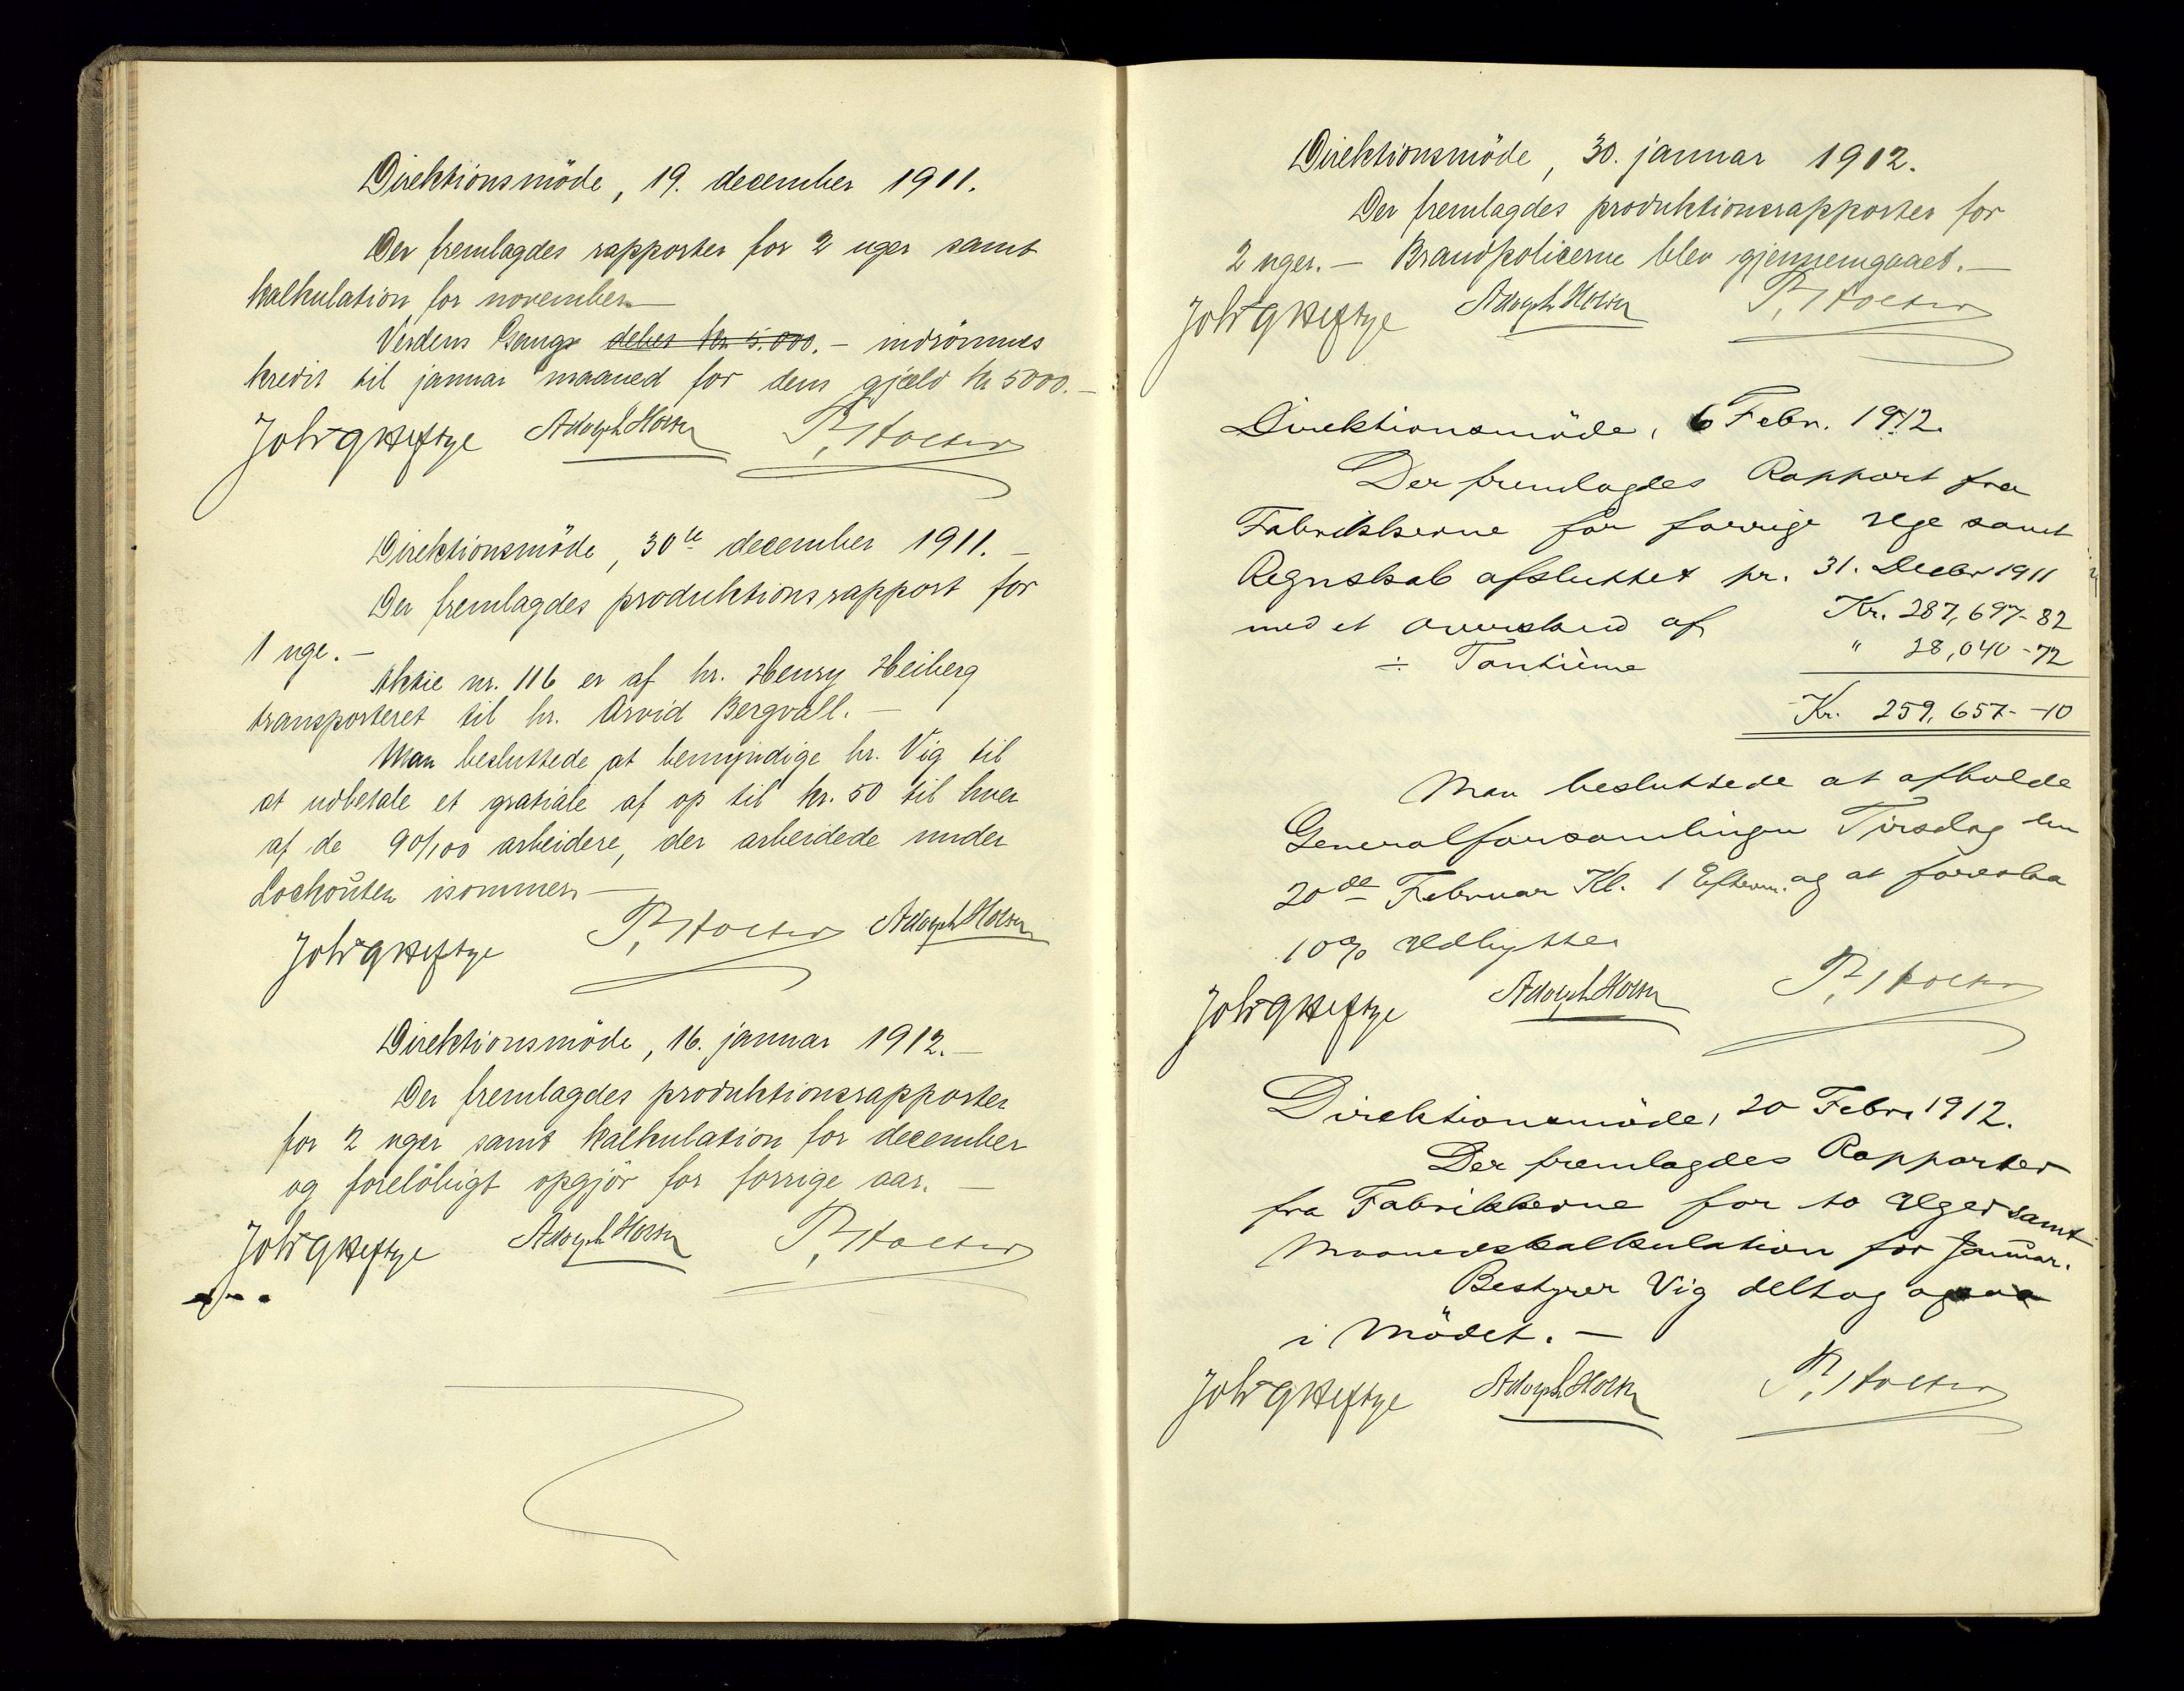 Direktionsmöde, 19. december 1911.
Der fremlagdes rapporter for 2 uger samt
kalkulation for november. —
Verdens Gang debet kr 5.000. — indrömmes
kredit til januar maaned for dens gjæld kr 5000. —
Joh G Heftye Adolph Holter P. Holter
Direktionsmöde, 30te december 1911. —
Der fremlagdes produktionsrapport for
1 uge. —
Aktie nr. 116 er af hr. Henry Heiberg
transporteret til hr. Arvid Bergvall. —
Man besluttede at bemyndige hr. Vig til
at udbetale et gratiale af op til kr. 50 til hver
af de 90/100 arbeidere, der arbeidede under
Lockouten isommer. —
Joh G Heftye P. Holter Adolph Holter
Direktionsmöde, 16. januar 1912. —
Der fremlagdes produktionsrapporter
for 2 uger samt kalkulation for december
og forelöbigt opgjör for forrige aar. —
Joh G Heftye Adolph Holter P. Holter
Direktionsmöde, 30. januar 1912.
Der fremlagdes produktionsrapporter for
2 uger. — Brandpolicerne blev gjennemgaaet. —
Joh G Heftye Adolph Holter P. Holter
Direktionsmöde, 6 Febr. 1912.
Der fremlagdes Rapport fra
Fabrikkerne for forrige Uge samt
Regnskab afsluttet pr. 31. Decbr 1911
med et Overskud af Kr. 287,697-82
÷ Tantième " 28,040-72
Kr. 259,657--10
Man besluttede at afholde
Generalforsamlingen Tirsdag den
20de Februar Kl. 1 Efterm. og at foreslaa
10% Udbytte.
Joh G Heftye Adolph Holter P. Holter
Direktionsmöde, 20 Febr. 1912.
Der fremlagdes Rapporter
fra Fabrikkerne for to Uger samt
Maanedskalkulation for Januar.
Bestyrer Vig deltog ogsaa
i Mödet. —
Joh G Heftye Adolph Holter P. Holter